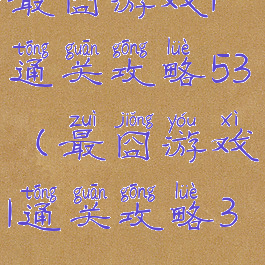 最囧游戏1
tōng guān gōng lüè
通关攻略53
zuì jiǒng yóu xì
(最囧游戏
tōng guān gōng lüè
1通关攻略3